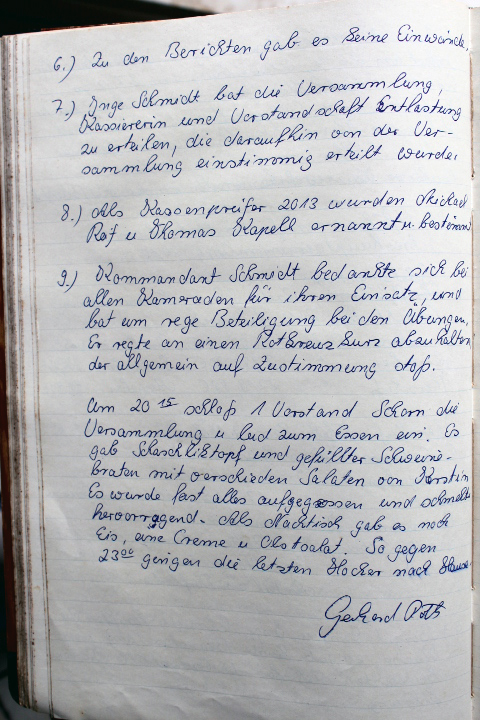 6.) Zu den Berichten gab es keine Einwände.
7.) Inge Schmidt bat die Versammlung,
Kassiererin und Vorstandschaft Entlastung
zu erteilen, die daraufhin von der Ver-
sammlung einstimmig erteilt wurde.
8.) Als Kassenprüfer 2013 wurden Michael
Rof u Thomas Kapell ernannt u. bestimmt
9.) Kommandant Schmidt bedankte sich bei
allen Kameraden für ihren Einsatz, und
bat um rege Beteiligung bei den Übungen.
Er regte an einen Rotkreuzkurs abzuhalten
der allgemein auf Zustimmung stoß.
Um 20 15 schloß 1 Vorstand Schorn die
Versammlung u lud zum Essen ein. Es
gab Schaschliktopf und gefüllter Schweine-
braten mit verschieden Salaten von Kerstin
Es wurde fast alles aufgegessen und schmeckte
hervorragend. Als Nachtisch gab es noch
Eis, eine Creme u Obstsalat. So gegen
23 00 gingen die letzten Hocker nach Hause
Gerhard Roth